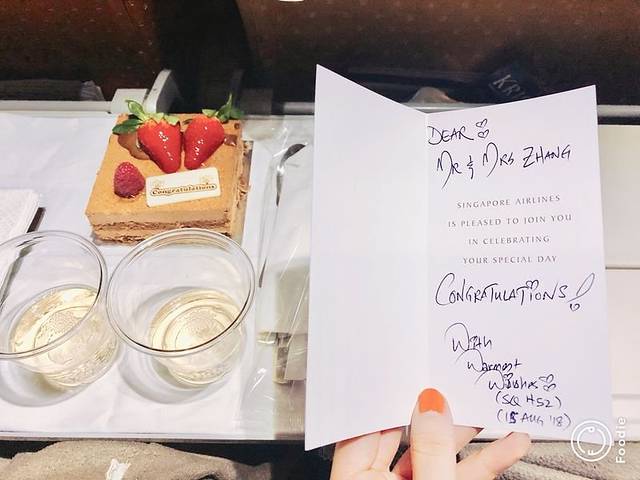 Congratulations
KRI
DEAR
MR & MRS ZHANG
SINGAPORE AIRLINES
IS PLEASED TO JOIN YOU
IN CELEBRATING
YOUR SPECIAL DAY
CONGRATULATIONS!
With
Warmest
Wishes
(SQ 452)
(15 AUG '18)
Foodie